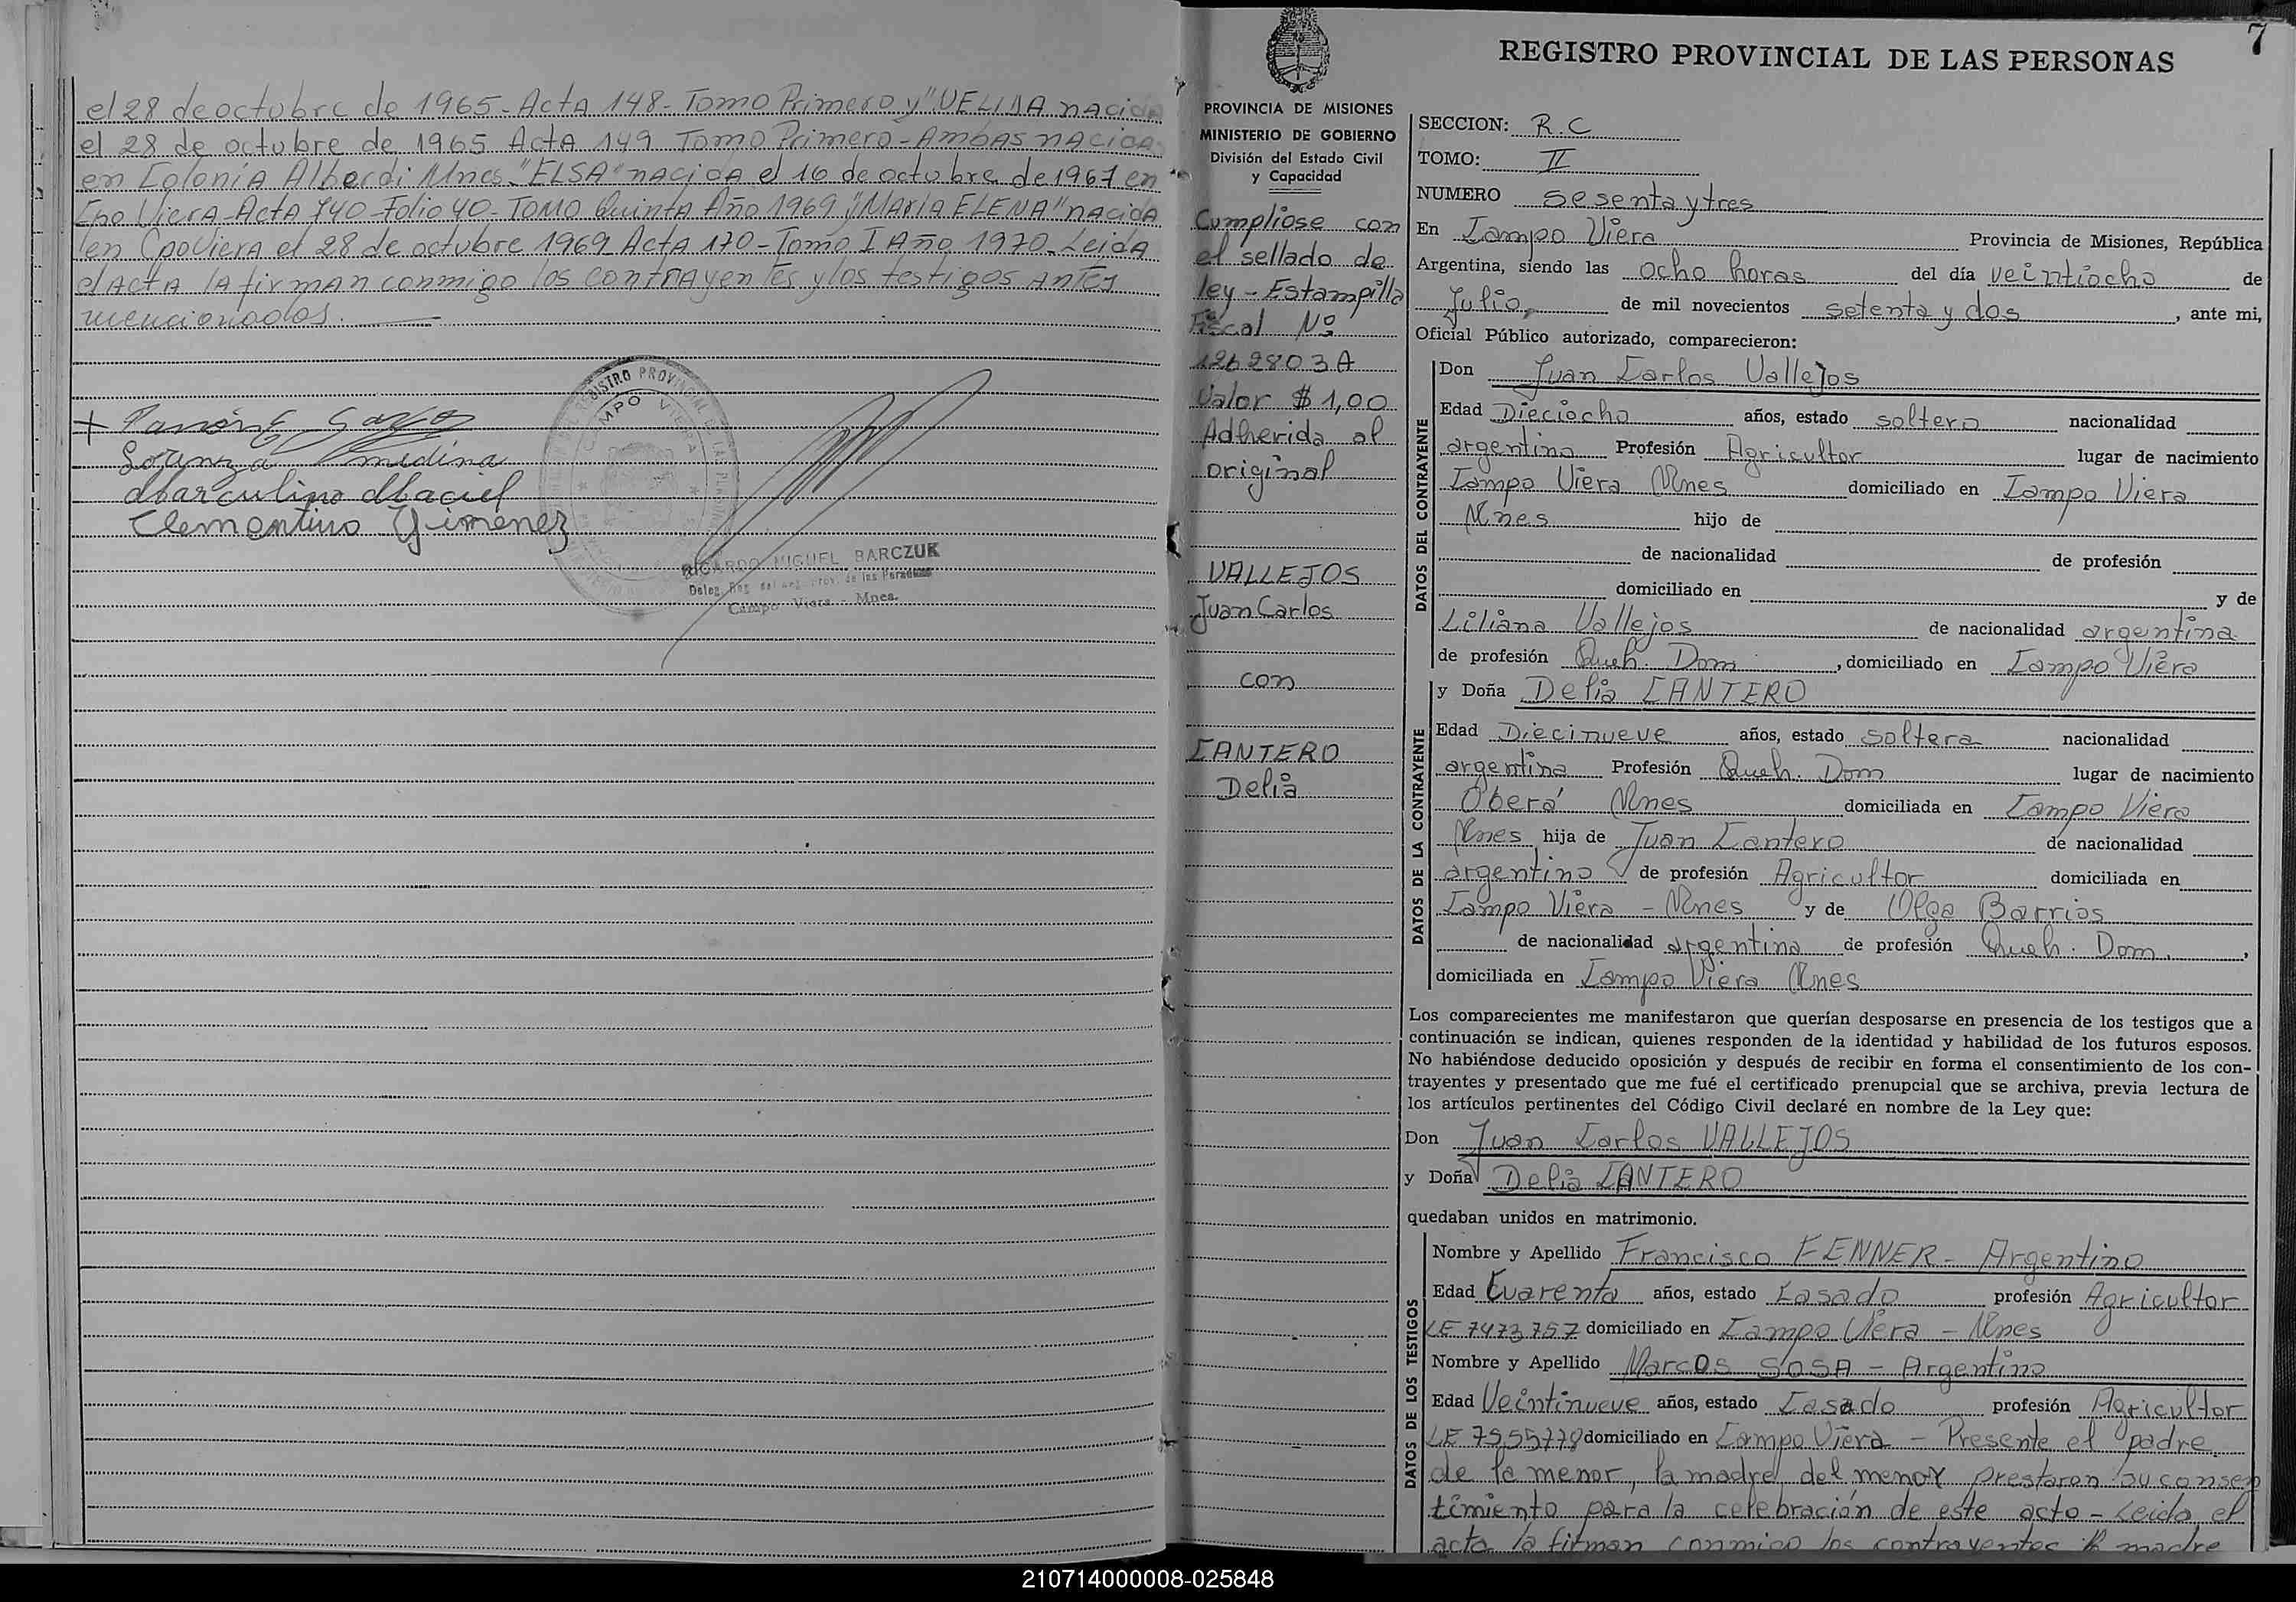 el 28 de octubre de 1965 - Acta 148 - Tomo Primero y "VELIDA nacida
el 28 de octubre de 1965 Acta 149 Tomo Primero - Ambas nacidas
en Colonia Alberdi Mnes. "ELSA" nacida el 16 de octubre de 1967 en
Cpo Viera - Acta 740 - Folio 40 - Tomo Quinta Año 1969 y "MARIA ELENA" nacida
en Cpo Viera el 28 de octubre 1969 Acta 170 - Tomo I Año 1970 - Leida
el acta la firman conmigo los contrayentes y los testigos antes
mencionados.
Lorenza Medina
Marculino Maciel
Clementino Gimenez
REGISTRO PROVINCIAL DE LAS PERSONAS
CAMPO VIERA
RICARDO MIGUEL BARCZUK
Deleg. Reg. del Reg. Prov. de las Personas
Campo Viera - Mnes.
7
REGISTRO PROVINCIAL DE LAS PERSONAS
PROVINCIA DE MISIONES
MINISTERIO DE GOBIERNO
División del Estado Civil
y Capacidad
Cumpliose con
el sellado de
ley - Estampilla
Fiscal Nº
1262803A
Valor $ 1,00
Adherida al
original
VALLEJOS
Juan Carlos
con
CANTERO
Delia
SECCION: R.C
TOMO: II
NUMERO sesenta y tres
En Campo Viera Provincia de Misiones, República
Argentina, siendo las ocho horas del día veintiocho de
Julio, de mil novecientos setenta y dos, ante mi,
Oficial Público autorizado, comparecieron:
DATOS DEL CONTRAYENTE
Don Juan Carlos Vallejos
Edad Dieciocho años, estado soltero nacionalidad
argentino Profesión Agricultor lugar de nacimiento
Campo Viera Mnes domiciliado en Campo Viera
Mnes hijo de
de nacionalidad de profesión
domiciliado en y de
Liliana Vallejos de nacionalidad argentina
de profesión Queh. Dom, domiciliado en Campo Viera
DATOS DE LA CONTRAYENTE
y Doña Delia CANTERO
Edad Diecinueve años, estado soltera nacionalidad
argentina Profesión Queh. Dom lugar de nacimiento
Oberá Mnes domiciliada en Campo Viera
Mnes hija de Juan Cantero de nacionalidad
argentino de profesión Agricultor domiciliada en
Campo Viera - Mnes y de Olga Barrios
de nacionalidad argentina de profesión Queh. Dom.,
domiciliada en Campo Viera Mnes
Los comparecientes me manifestaron que querían desposarse en presencia de los testigos que a
continuación se indican, quienes responden de la identidad y habilidad de los futuros esposos.
No habiéndose deducido oposición y después de recibir en forma el consentimiento de los con-
trayentes y presentado que me fué el certificado prenupcial que se archiva, previa lectura de
los artículos pertinentes del Código Civil declaré en nombre de la Ley que:
Don Juan Carlos VALLEJOS
y Doña Delia CANTERO
quedaban unidos en matrimonio.
DATOS DE LOS TESTIGOS
Nombre y Apellido Francisco FENNER - Argentino
Edad Cuarenta años, estado Casado profesión Agricultor
LE 7473757 domiciliado en Campo Viera - Mnes
Nombre y Apellido Marcos SOSA - Argentino
Edad Veintinueve años, estado Casado profesión Agricultor
LE 7555778 domiciliado en Campo Viera - Presente el padre
de la menor, la madre del menor prestaron su consen
timiento para la celebración de este acto - Leida el
acta la firman conmigo los contrayentes la madre
210714000008-025848